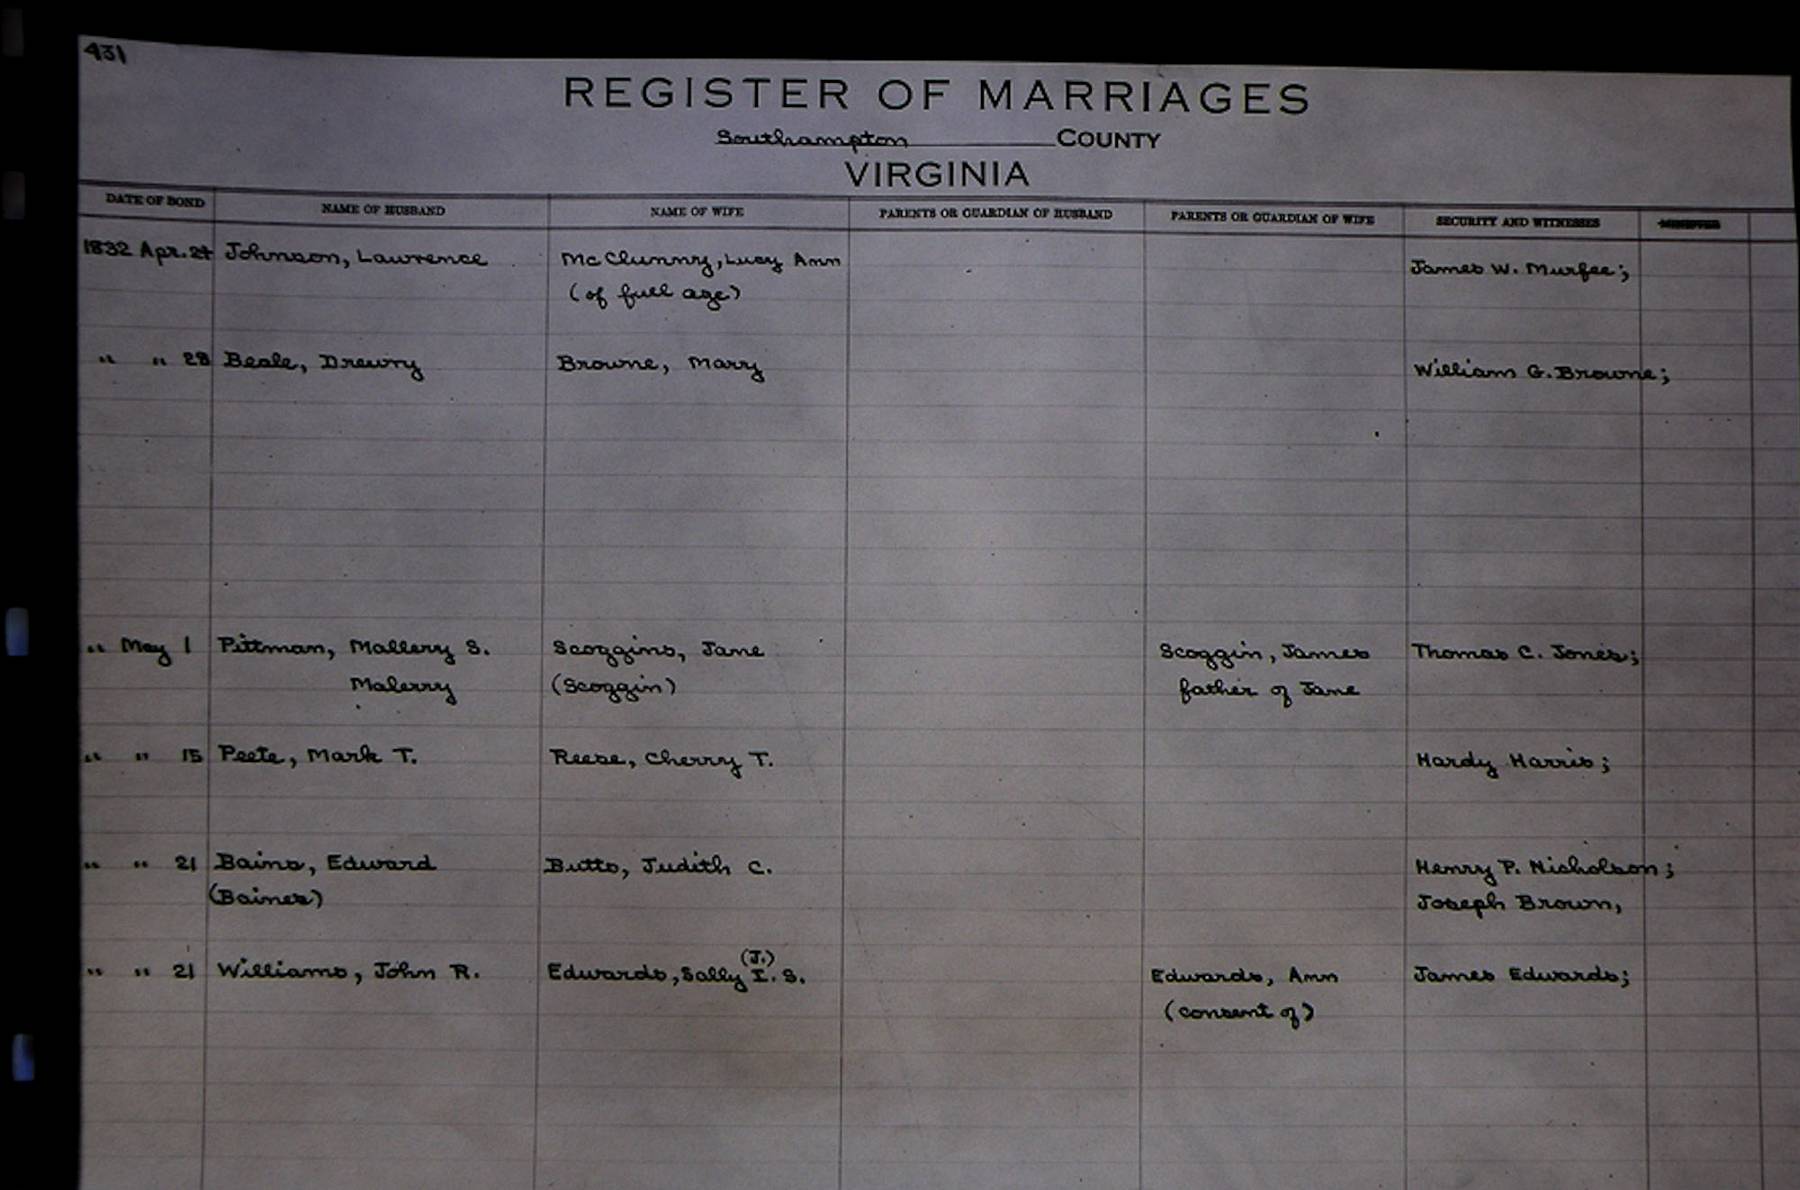 431
REGISTER OF MARRIAGES
Southampton COUNTY
VIRGINIA
DATE OF BOND NAME OF HUSBAND NAME OF WIFE PARENTS OR GUARDIAN OF HUSBAND PARENTS OR GUARDIAN OF WIFE SECURITY AND WITNESSES
1832 Apr. 24 Johnson, Lawrence McClunny, Lucy Ann James W. Murfee;
(of full age)
" " 28 Beale, Drewry Browne, Mary William G. Browne;
" May 1 Pittman, Mallery S. Scoggins, Jane Scoggin, James Thomas C. Jones;
Malerry (Scoggin) father of Jane
" " 15 Peete, Mark T. Reese, Cherry T. Hardy Harris;
" " 21 Bains, Edward Butts, Judith C. Henry P. Nicholson;
(Baines) Joseph Brown,
(J.)
" " 21 Williams, John R. Edwards, Sally I. S. Edwards, Ann James Edwards;
(consent of)